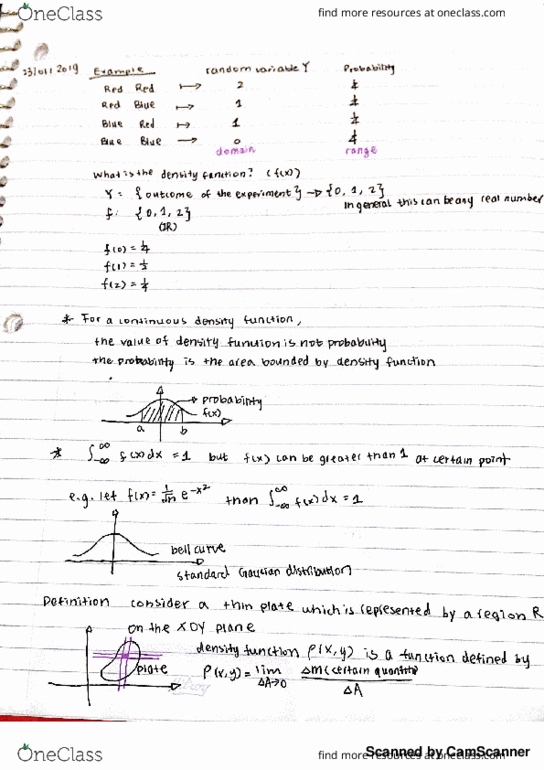 OneClass
find more resources at oneclass.com
23/01/2019 Example random variable Y Probability
Red Red ↦ 2 1/4
Red Blue ↦ 1
Blue Red ↦ 1
Blue Blue → 0 1/4
domain range
What is the density function? (f(x))
Y = {outcome of the experiment} → {0, 1, 2}
In general this can be any real number
f: {0, 1, 2}
(IR)
f(0) = 1/4
f(1) = 1/2
f(2) = 1/4
* For a continuous density function,
the value of density function is not probability
the probability is the area bounded by density function
probability
f(x)
a b
* ∫_{-∞}^{∞} f(x) dx = 1 but f(x) can be greater than 1 at certain point
e.g. let f(x) = 1/√π e^{-x²} then ∫_{-∞}^{∞} f(x) dx = 1
bell curve
standard Gaussian distribution
Definition consider a thin plate which is represented by a region R
on the XOY plane
density function ρ(x,y) is a function defined by
plate
ρ(x,y) = lim_{ΔA→0} Δm (certain quantity) / ΔA
OneClass
find more resources at oneclass.com
Scanned by CamScanner